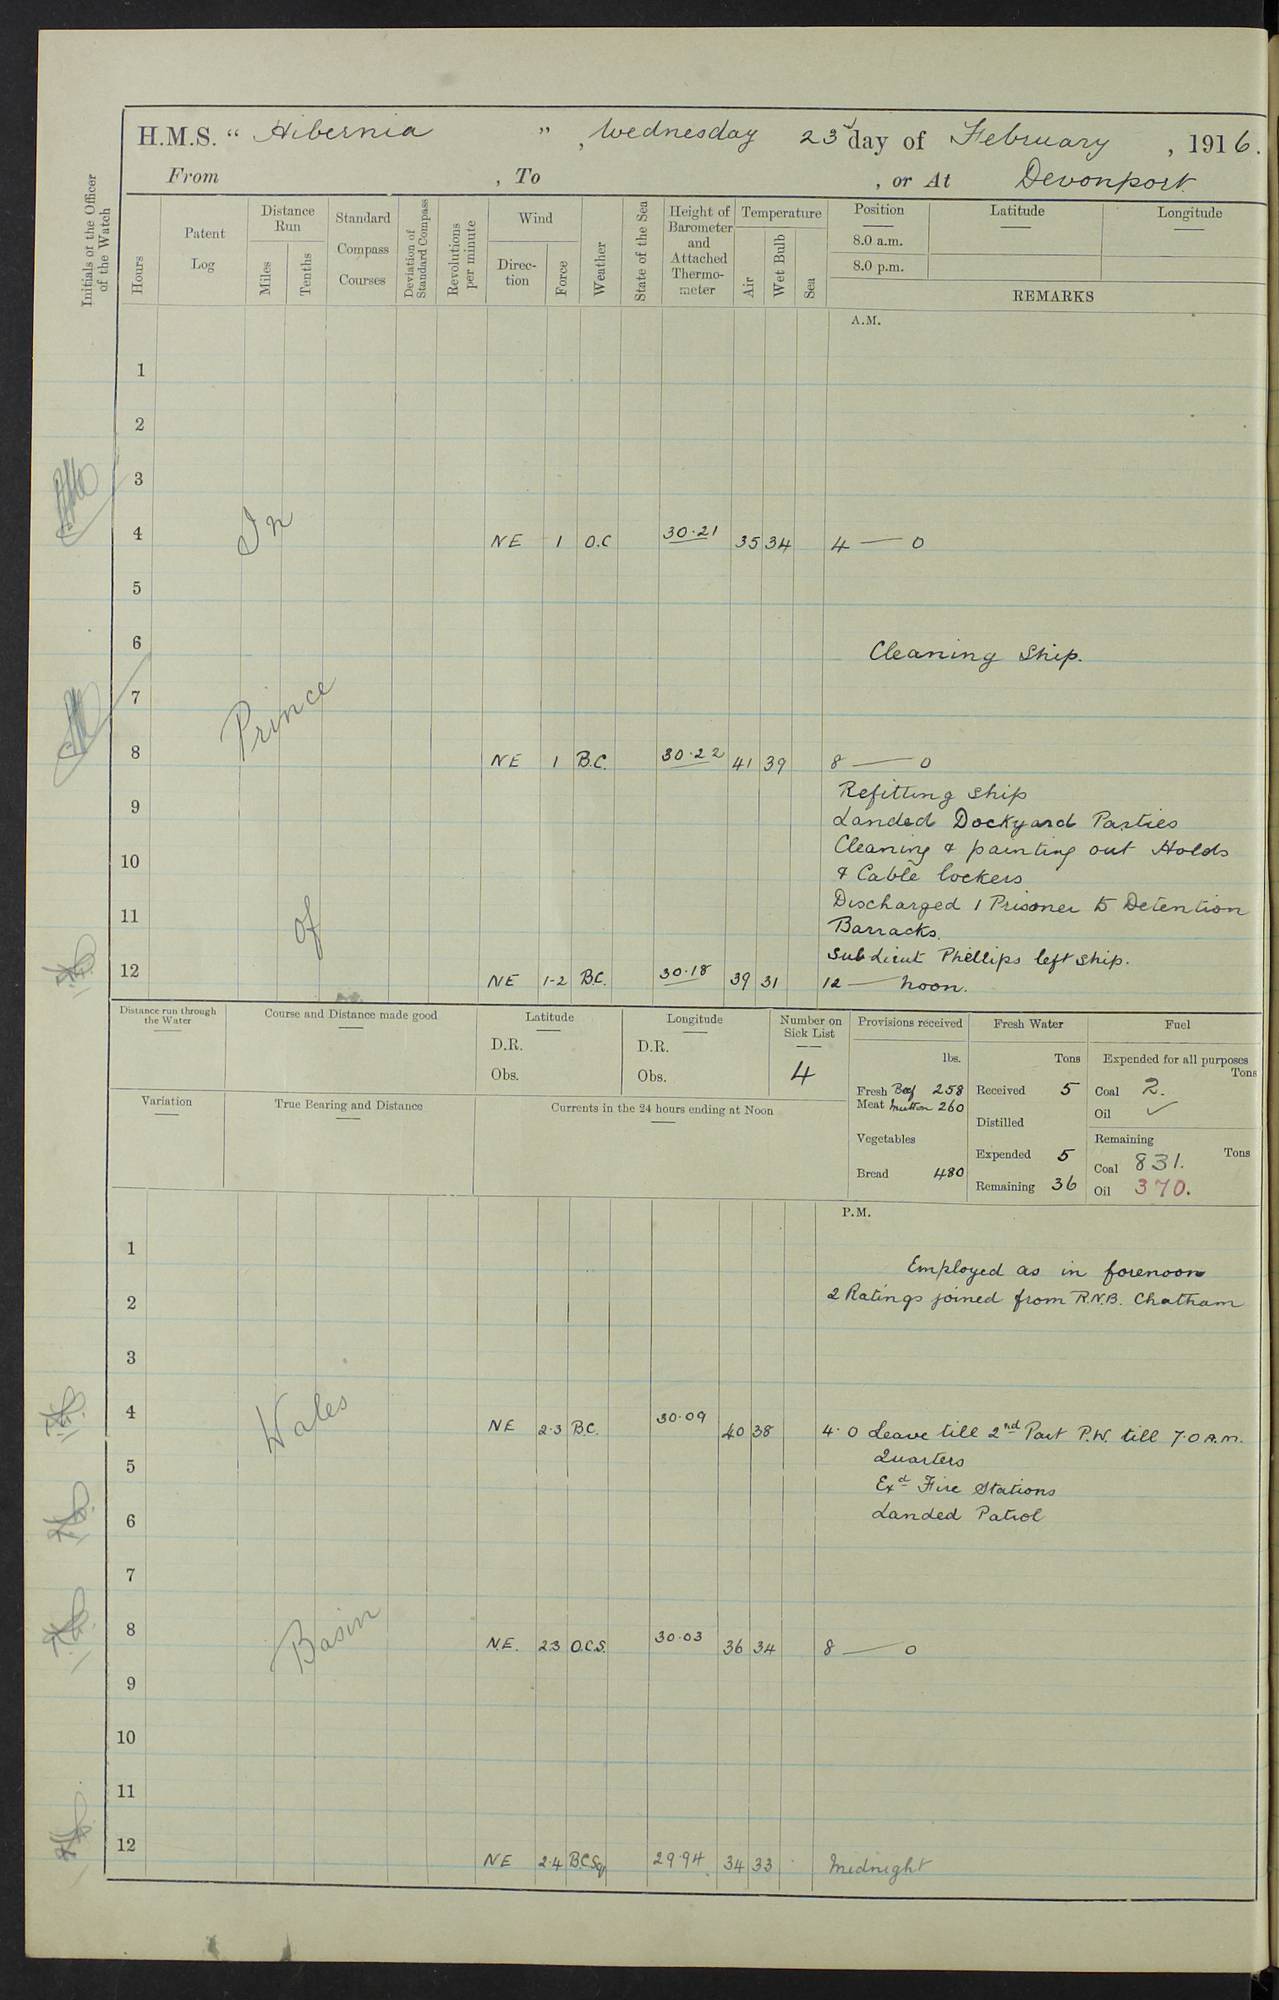 H.M.S. “ Hibernia ”, Wednesday 23rd day of February, 1916.
From , To , or At Devonport
Initials of the Officer of the Watch
Hours
Patent Log
Distance Run
Miles
Tenths
Standard Compass Courses
Deviation of Standard Compass
Revolutions per minute
Wind
Direc-tion
Force
Weather
State of the Sea
Height of Barometer and Attached Thermo-meter
Temperature
Air
Wet Bulb
Sea
Position Latitude Longitude
8.0 a.m.
8.0 p.m.
REMARKS
A.M.
1
2
3
In
4 NE 1 O.C 30·21 35 34 4 — 0
5
6 Cleaning Ship.
7
Prince
8 NE 1 B.C. 30·22 41 39 8 — 0
Refitting ship
9
Landed Dockyard Parties
Cleaning & painting out Holds
10
& Cable lockers
Discharged 1 Prisoner to Detention
11
Barracks.
of
Sub Lieut Phillips left ship.
12 NE 1-2 B.C. 30·18 39 31 12 — Noon.
Distance run through the Water
Course and Distance made good
Latitude
D.R.
Obs.
Longitude
D.R.
Obs.
Number on Sick List
4
Provisions received
lbs.
Fresh Beef 258
Meat Mutton 260
Vegetables
Bread 480
Fresh Water
Tons
Received 5
Distilled
Expended 5
Remaining 36
Fuel
Expended for all purposes
Tons
Coal 2.
Oil ✓
Remaining
Tons
Coal 831.
Oil 370.
Variation
True Bearing and Distance
Currents in the 24 hours ending at Noon
P.M.
1
Employed as in forenoon
2 2 Ratings joined from R.N.B. Chatham
3
Wales
4 NE 2·3 B.C. 30·09 40 38 4·0 Leave till 2nd Part P.W. till 7·0 A.M.
5 Quarters
Exd Fire Stations
6 Landed Patrol
7
Basin
8 N.E. 2·3 O.C.S. 30·03 36 34 8 — 0
9
10
11
12 NE 2·4 B.C.Sq 29·94 34 33 Midnight